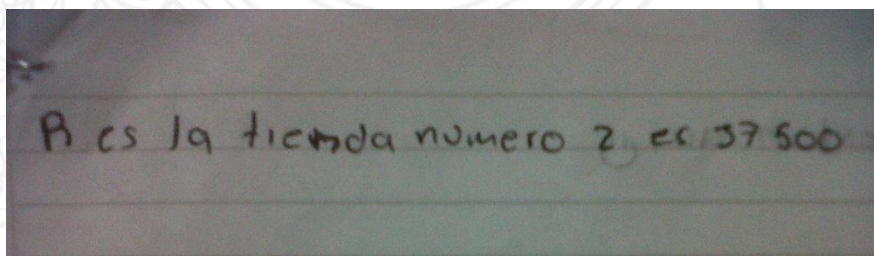 R es la tienda numero 2 es 37 500